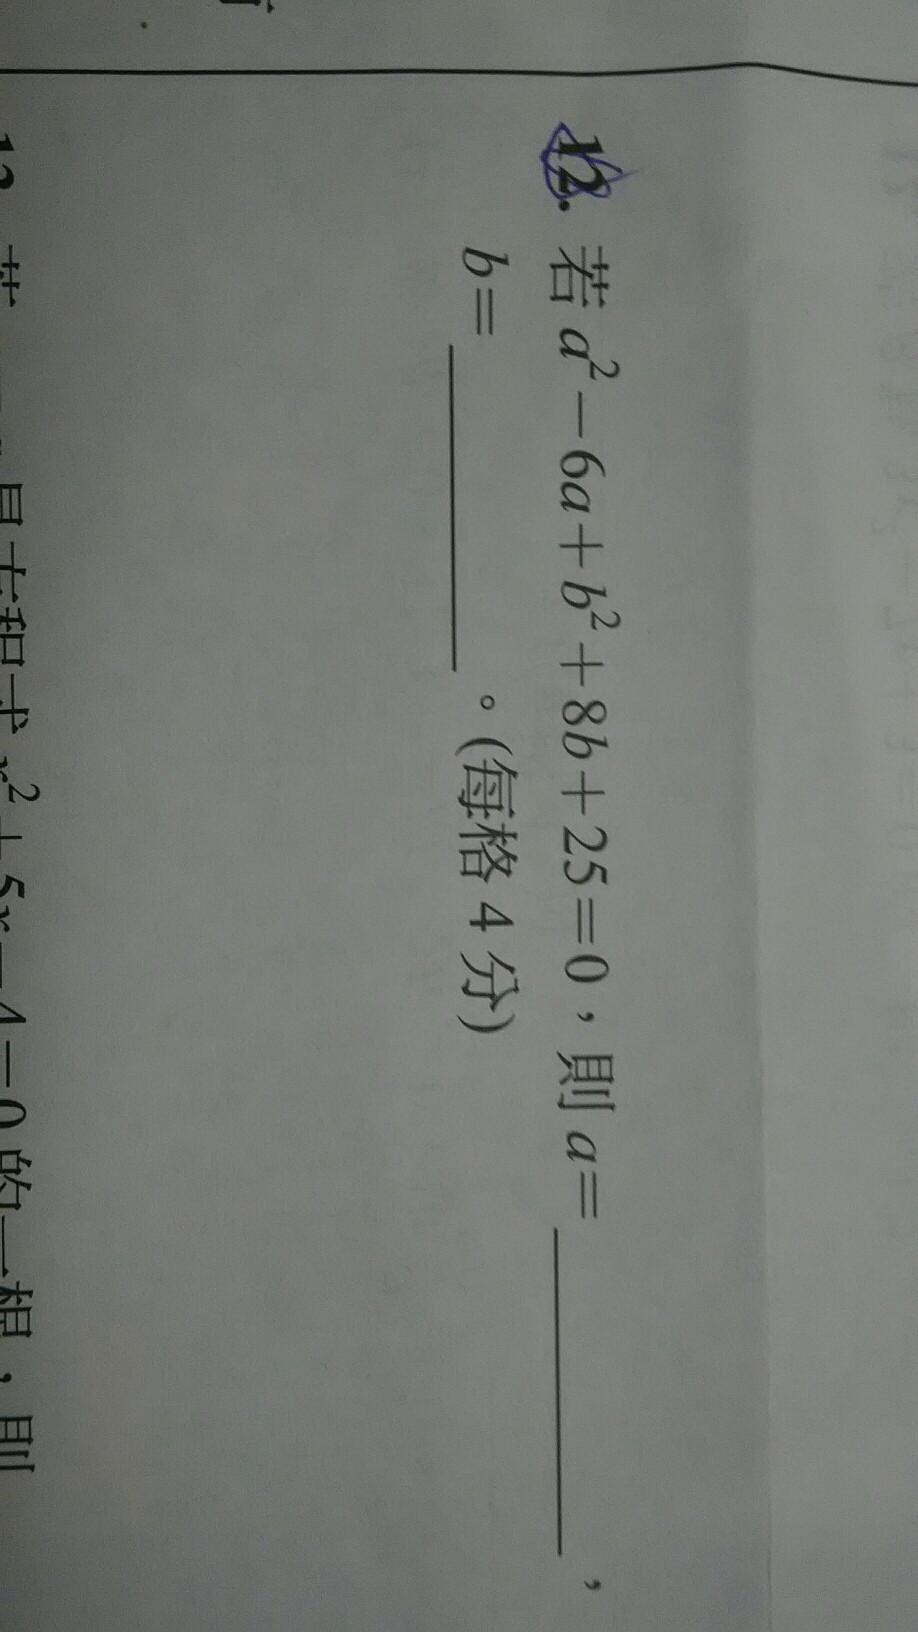 12. 若 a²－6a＋b²＋8b＋25＝0，則 a＝＿＿＿＿，
b＝＿＿＿＿。(每格 4 分)
x²＋5x－4＝0 的一根，則